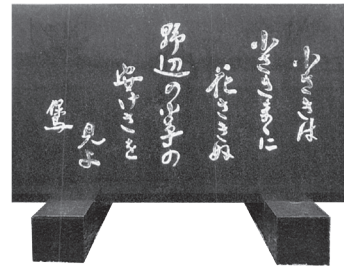 小さきは
小さきまゝに
花さきぬ
野辺の小草の
安けさを
見よ
保馬